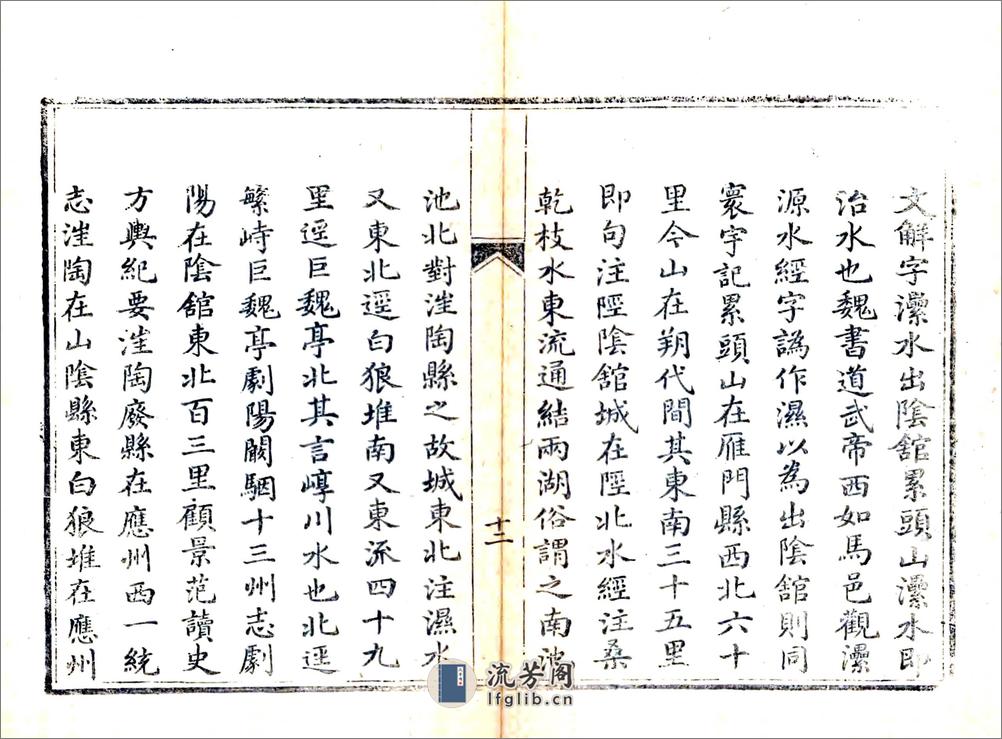 文解字㶟水出陰舘累頭山㶟水即
治水也魏書道武帝西如馬邑觀㶟
源水經字譌作濕以為出陰舘則同
寰宇記累頭山在雁門縣西北六十
里今山在朔代間其東南三十五里
即句注陘陰舘城在陘北水經注桑
乾枝水東流通結兩湖俗謂之南池
十二
池北對㳻陶縣之故城東北注濕水
又東北逕白狼堆南又東流四十九
里逕巨魏亭北其言崞川水也北逕
繁峙巨魏亭劇陽闞駰十三州志劇
陽在陰舘東北百三里顧景范讀史
方輿紀要㳻陶廢縣在應州西一統
志㳻陶在山陰縣東白狼堆在應州
流芳阁
lfglib.cn